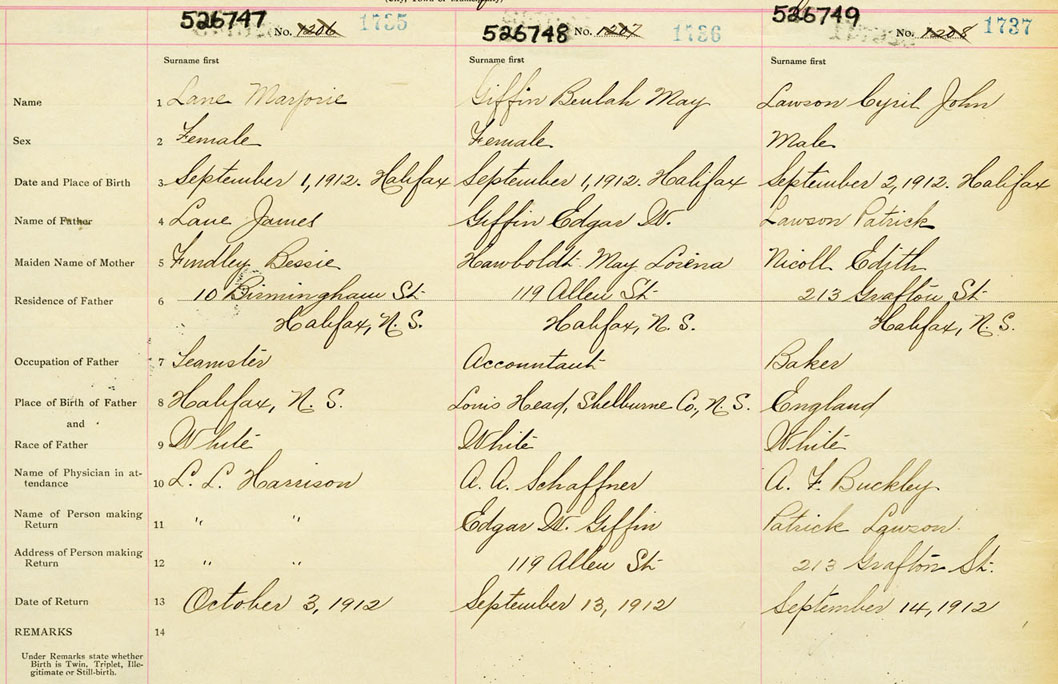 526747 No. 1206 1735
526748 No. 1207 1736
526749 No. 1208 1737
Surname first Surname first Surname first
Name 1 Lane Marjorie Giffin Beulah May Lawson Cyril John
Sex 2 Female Female Male
Date and Place of Birth 3 September 1, 1912. Halifax September 1, 1912. Halifax September 2, 1912. Halifax
Name of Father 4 Lane James Giffin Edgar W. Lawson Patrick
Maiden Name of Mother 5 Findley Bessie Hawboldt May Lorena Nicoll Edith
Residence of Father 6 10 Birmingham St. 119 Allen St. 213 Grafton St.
Halifax, N.S. Halifax, N.S. Halifax, N.S.
Occupation of Father 7 Teamster Accountant Baker
Place of Birth of Father 8 Halifax, N.S. Louis Head, Shelburne Co., N.S. England
and
Race of Father 9 White White White
Name of Physician in at-
tendance 10 L. L. Harrison A. A. Schaffner A. F. Buckley
Name of Person making
Return 11 " " Edgar W. Giffin Patrick Lawson.
Address of Person making
Return 12 " " 119 Allen St. 213 Grafton St.
Date of Return 13 October 3, 1912 September 13, 1912 September 14, 1912
REMARKS 14
Under Remarks state whether
Birth is Twin, Triplet, Ille-
gitimate or Still-birth.